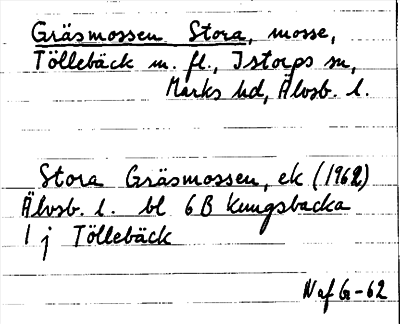 Gräsmossen Stora, mosse,
Töllebäck m. fl., Istorps sn,
Marks hd, Älvsb. l.
Stora Gräsmossen, ek (1962)
Älvsb. l. bl 6B Kungsbacka
1 j Töllebäck
N af G-62